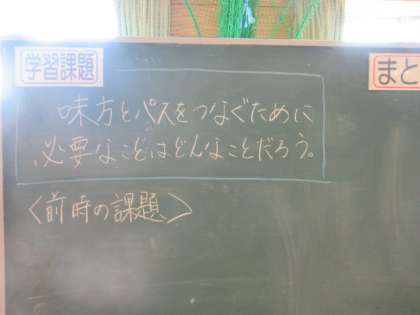 学習課題
まと
味方とパスをつなぐために
必要なことはどんなことだろう。
<前時の課題>